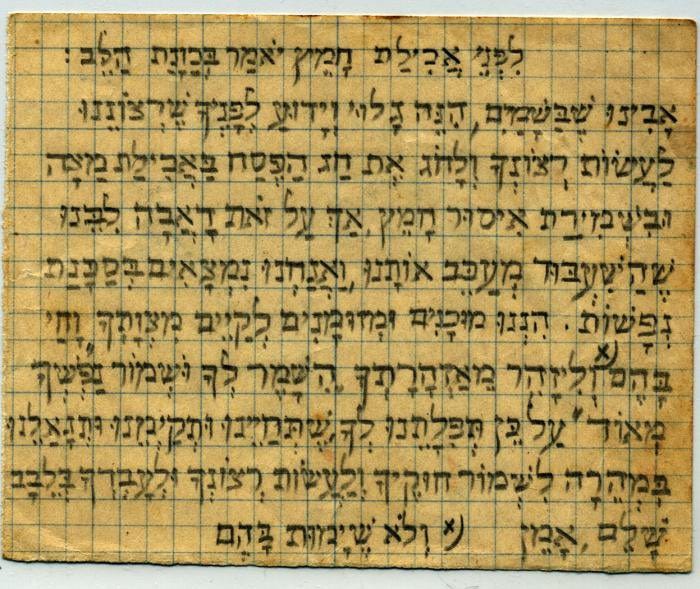 לִפְנֵי אֲכִילַת חָמֵץ יֹאמַר בְּכַוָּנַת הַלֵּב :
אָבִינוּ שֶׁבַּשָּׁמַיִם, הִנֵּה גָּלוּי וְיָדוּעַ לְפָנֶיךָ שֶׁרְצוֹנֵנוּ
לַעֲשׂוֹת רְצוֹנְךָ וְלָחֹג אֶת חַג הַפֶּסַח בַּאֲכִילַת מַצָּה
וּבִשְׁמִירַת אִיסוּר חָמֵץ, אַךְ עַל זֹאת דָּאֲבָה לִבֵּנוּ
שֶׁהַשִּׁעְבּוּד מְעַכֵּב אוֹתָנוּ, וַאֲנַחְנוּ נִמְצָאִים בְּסַכָּנַת
נְפָשׁוֹת. הִנְנוּ מוּכָנִים וּמְזוּמָּנִים לְקַיֵּים מִצְוָתְךָ "וָחַי
בָּהֶם" x) וְלִיזָּהֵר מֵאַזְהָרָתְךָ "הִשָּׁמֶר לְךָ וּשְׁמוֹר נַפְשְׁךָ
מְאוֹד" עַל כֵּן תְּפִלָּתֵנוּ לְךָ, שֶׁתְּחַיֵּינוּ וּתְקַיְּמֵנוּ וְתִגְאָלֵנוּ
בִּמְהֵרָה לִשְׁמוֹר חוּקֶיךָ וְלַעֲשׂוֹת רְצוֹנְךָ וּלְעָבְדְּךָ בְּלֵבָב
שָׁלֵם, אָמֵן x) וְלֹא שֶׁיָּמוּת בָּהֶם